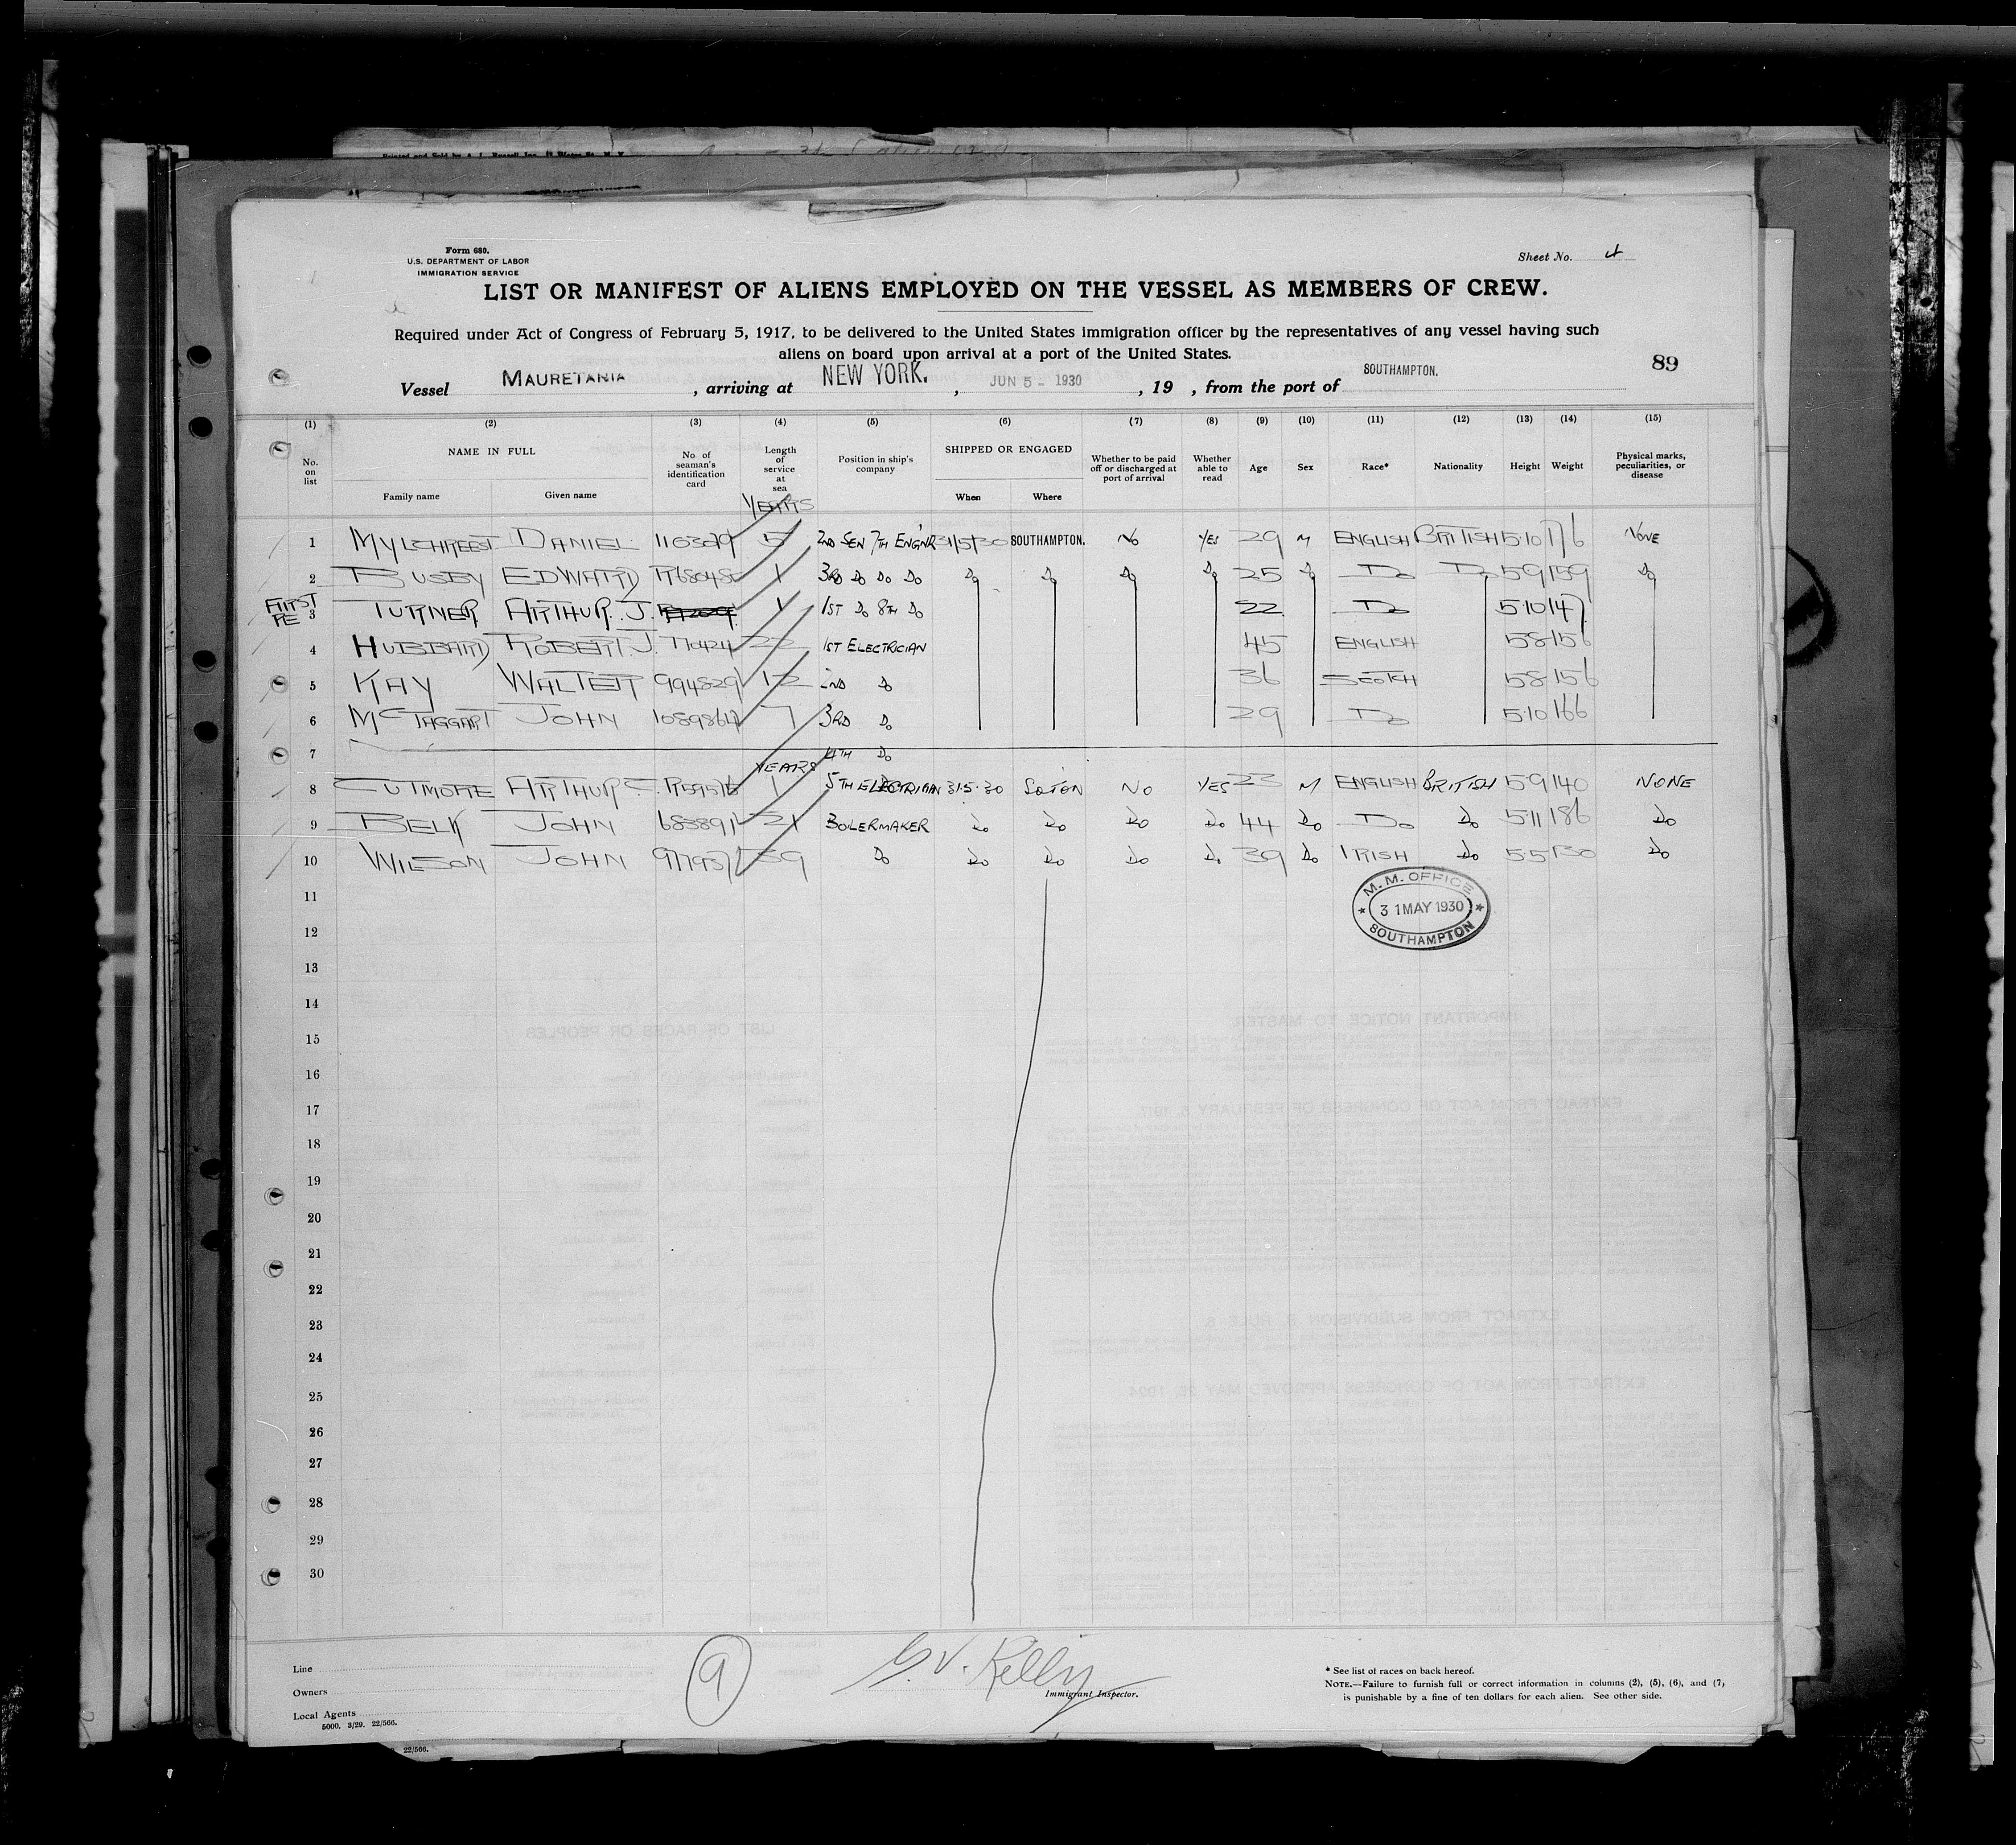 Form 680.
U.S. DEPARTMENT OF LABOR
IMMIGRATION SERVICE
Sheet No. 4
LIST OR MANIFEST OF ALIENS EMPLOYED ON THE VESSEL AS MEMBERS OF CREW.
Required under Act of Congress of February 5, 1917, to be delivered to the United States immigration officer by the representatives of any vessel having such
aliens on board upon arrival at a port of the United States.
89
Vessel MAURETANIA, arriving at NEW YORK., JUN 5 - 1930, 19 , from the port of SOUTHAMPTON.
(1) (2) (3) (4) (5) (6) (7) (8) (9) (10) (11) (12) (13) (14) (15)
No. on list NAME IN FULL Family name Given name No. of seaman's identification card Length of service at sea Position in ship's company SHIPPED OR ENGAGED When Where Whether to be paid off or discharged at port of arrival Whether able to read Age Sex Race* Nationality Height Weight Physical marks, peculiarities, or disease
YEARS
1 MYLCHREEST DANIEL 110309 5 2ND SEN 7TH ENGNR 31/5/30 SOUTHAMPTON. NO YES 29 M ENGLISH BRITISH 5·10 176 NONE
2 BUSBY EDWARD R68048 1 3RD DO DO DO DO DO DO DO 25 DO DO DO 5·9 159 DO
FIRST
RE 3 TURNER ARTHUR. J. 1 1ST DO 8TH DO 22 DO 5·10 147
4 HUBBARD ROBERT. J. 77042 22 1ST ELECTRICIAN 45 ENGLISH 5·8 156
5 KAY WALTER 994829 12 2ND DO 36 SCOTCH 5·8 156
6 MCTAGGART JOHN 1089864 7 3RD DO 29 DO 5·10 166
7 4TH DO
YEARS
8 CUTMORE ARTHUR C. R59576 1 5TH ELECTRICIAN 31·5·30 SOTON NO YES 23 M ENGLISH BRITISH 5·9 140 NONE
9 BELK JOHN 683891 21 BOILERMAKER DO DO DO DO 44 DO DO DO 5·11 186 DO
10 WILSON JOHN 977937 39 DO DO DO DO DO 39 DO IRISH DO 5·5 130 DO
M. M. OFFICE
31 MAY 1930
SOUTHAMPTON
11
12
13
14
15
16
17
18
19
20
21
22
23
24
25
26
27
28
29
30
Line
Owners
Local Agents
5000. 3/29. 22/566.
9
G. V. Kelly
Immigrant Inspector.
* See list of races on back hereof.
NOTE.—Failure to furnish full or correct information in columns (2), (5), (6), and (7),
is punishable by a fine of ten dollars for each alien. See other side.
22/566.